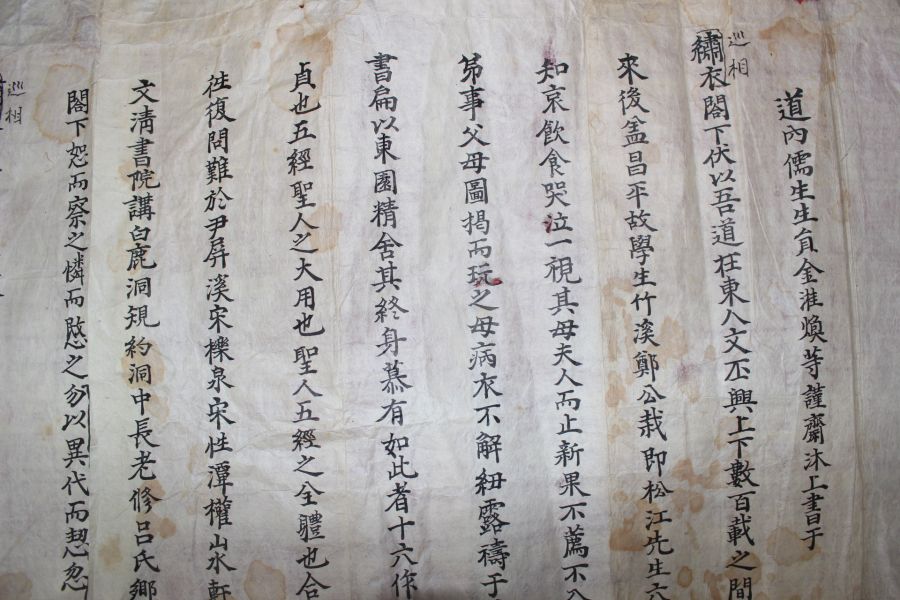 道內儒生生員金淮煥等謹齋沐上書于
巡相
繡衣閤下伏以吾道在東人文丕興上下數百載之間
來後孟昌平故學生竹溪鄭公栽即松江先生六
知哀飮食哭泣一視其母夫人而止新果不薦不入
第事父母圖揭而玩之母病衣不解紐露禱于
書扁以東園精舍其終身慕有如此者十六作
貞也五經聖人之大用也聖人五經之全體也合
徃復問難於尹屛溪宋櫟泉宋性潭權山水軒
文淸書院講白鹿洞規約洞中長老修呂氏鄕
閤下恕而察之憐而愍之勿以異代而恝忽
巡相